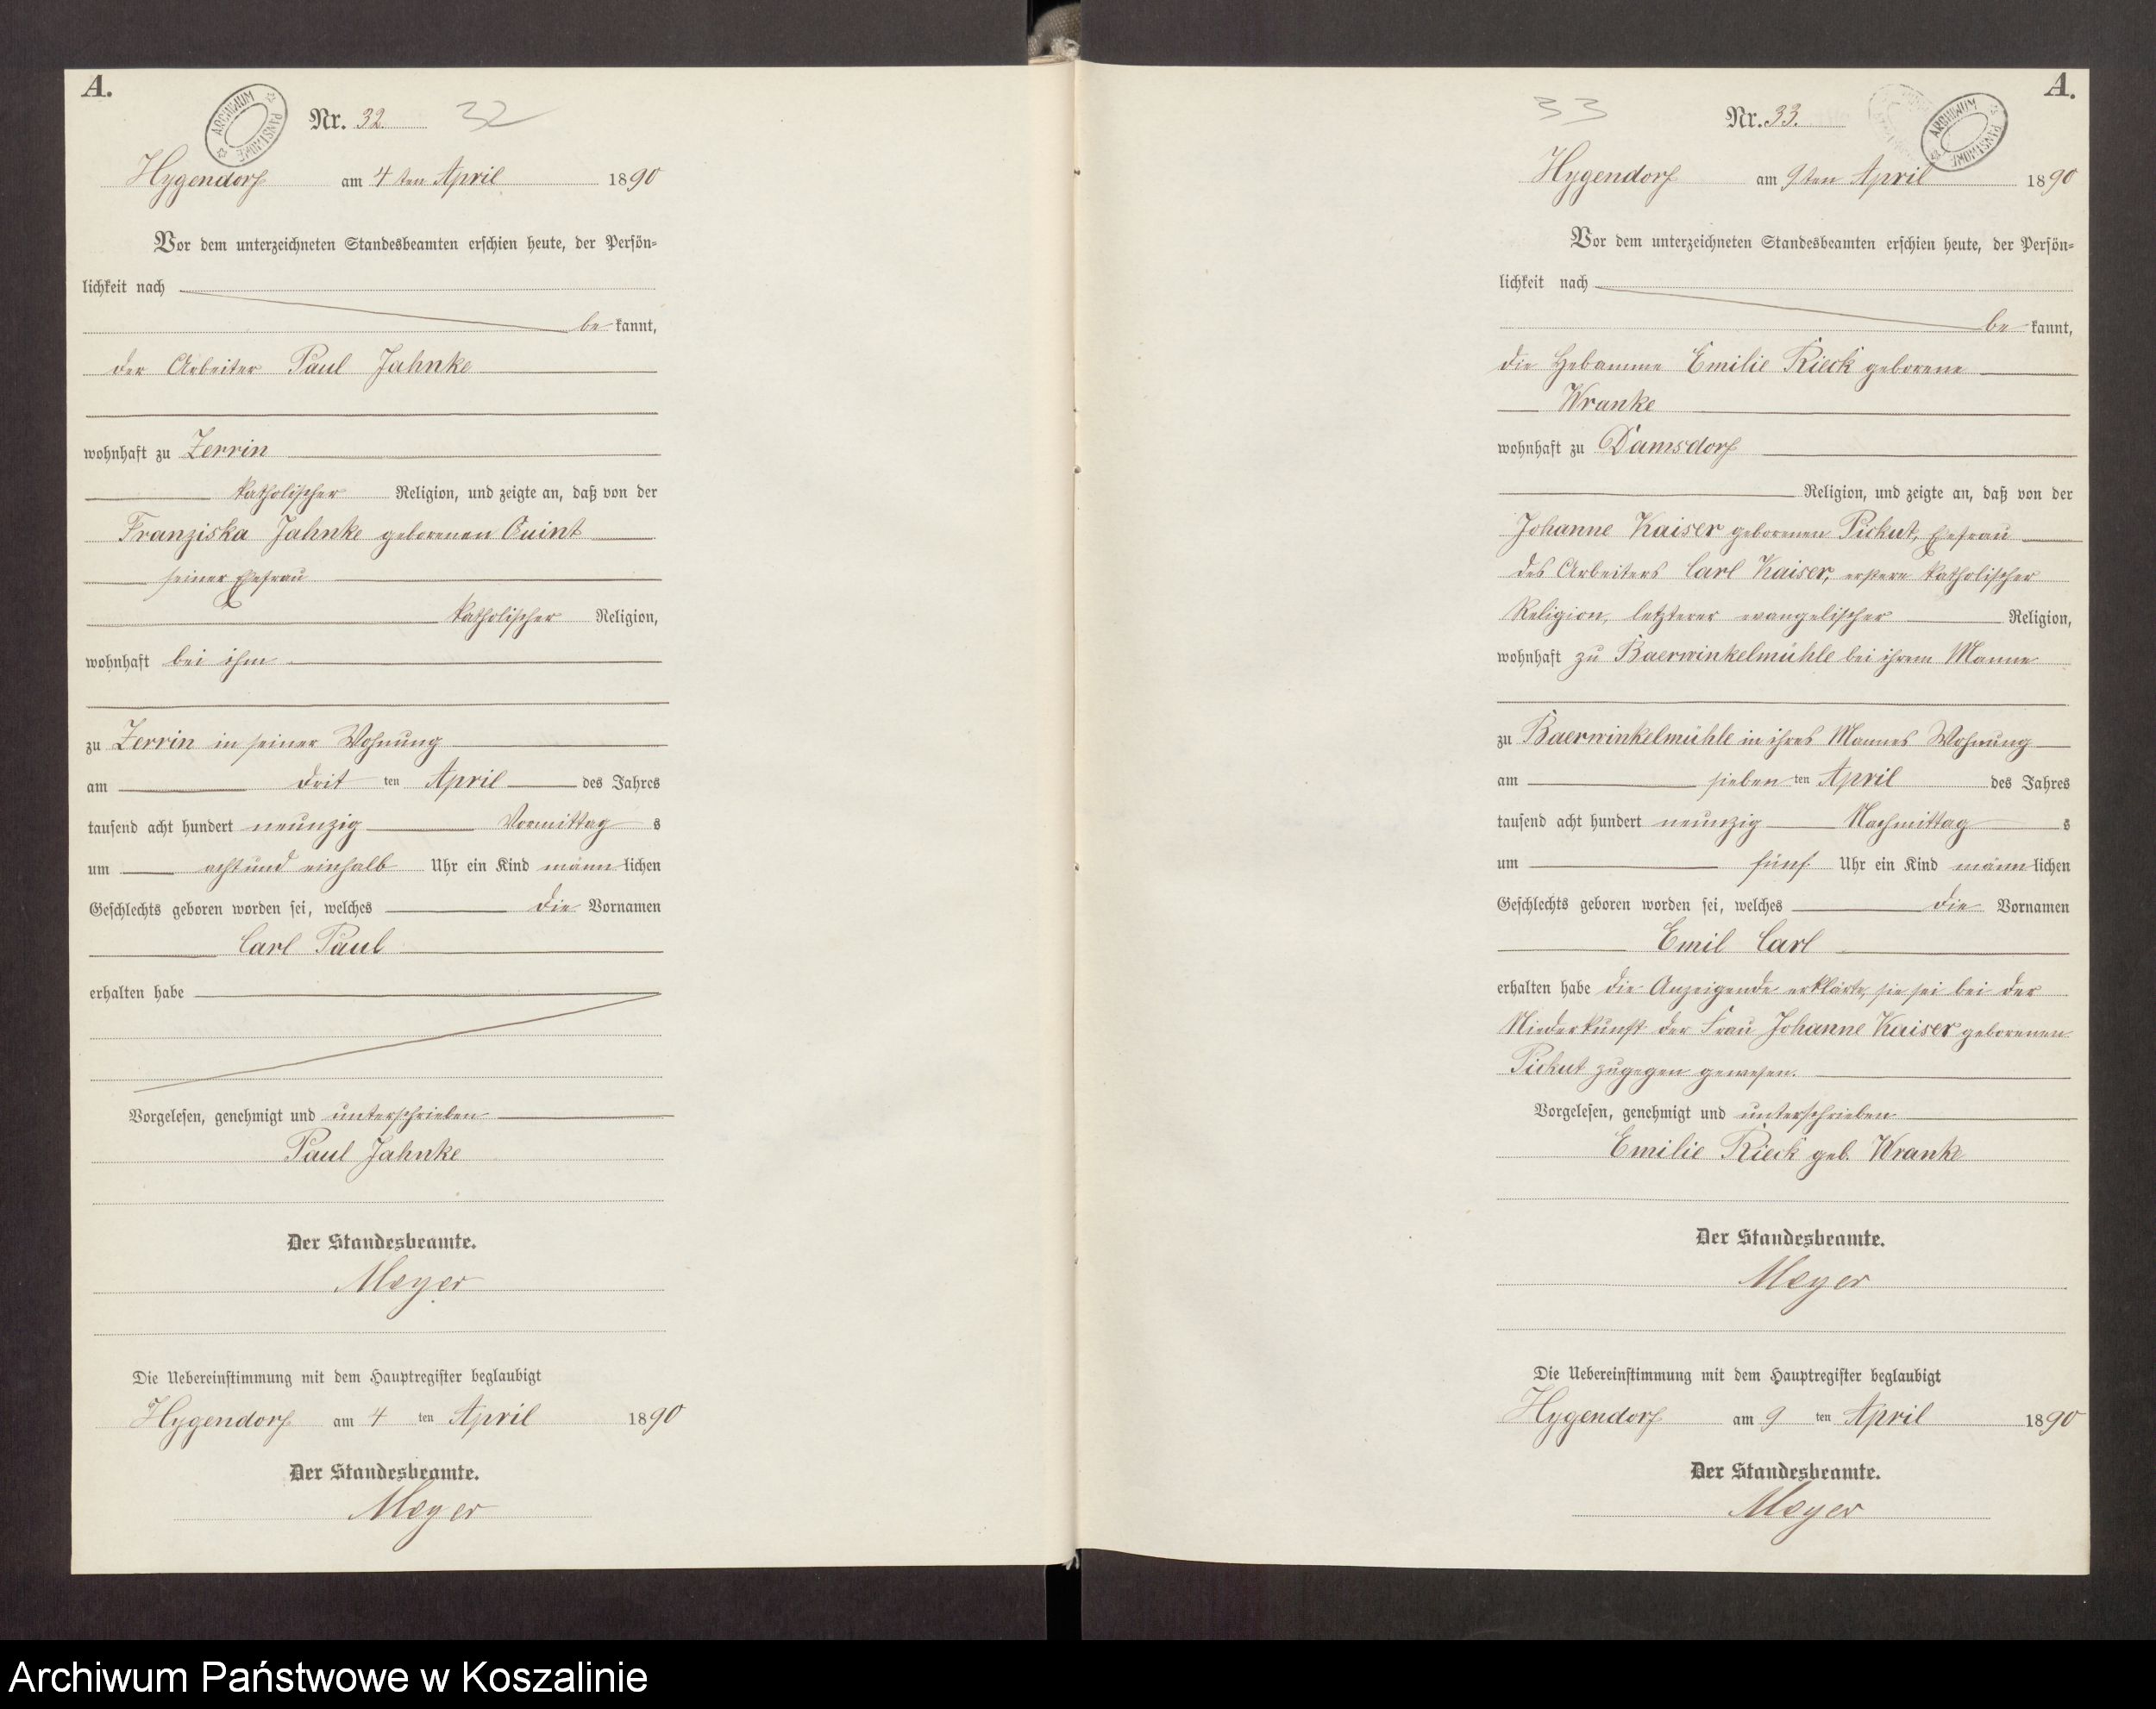 A.
ARCHIWUM PAŃSTWOWE
Nr. 32. 32
Hygendorf am 4 ten April 1890
Vor dem unterzeichneten Standesbeamten erschien heute, der Persön=
lichkeit nach
be kannt,
der Arbeiter Paul Jahnke
wohnhaft zu Zerrin
katholischer Religion, und zeigte an, daß von der
Franziska Jahnke geborenen Quint
seiner Ehefrau
katholischer Religion,
wohnhaft bei ihm
zu Zerrin in seiner Wohnung
am drit ten April des Jahres
tausend acht hundert neunzig Vormittag s
um acht und einhalb Uhr ein Kind männ lichen
Geschlechts geboren worden sei, welches die Vornamen
Carl Paul
erhalten habe
Vorgelesen, genehmigt und unterschrieben
Paul Jahnke
Der Standesbeamte.
Meyer
Die Uebereinstimmung mit dem Hauptregister beglaubigt
Hygendorf am 4 ten April 1890
Der Standesbeamte.
Meyer
A.
33 Nr. 33.
ARCHIWUM PAŃSTWOWE
Hygendorf am 9 ten April 1890
Vor dem unterzeichneten Standesbeamten erschien heute, der Persön=
lichkeit nach
be kannt,
die Hebamme Emilie Rieck geborene
Wranke
wohnhaft zu Damsdorf
Religion, und zeigte an, daß von der
Johanne Kaiser geborenen Pickut, Ehefrau
des Arbeiters Carl Kaiser, erstere katholischer
Religion, letzterer evangelischer Religion,
wohnhaft zu Baerwinkelmühle bei ihrem Manne
zu Baerwinkelmühle in ihres Mannes Wohnung
am sieben ten April des Jahres
tausend acht hundert neunzig Nachmittag s
um fünf Uhr ein Kind männ lichen
Geschlechts geboren worden sei, welches die Vornamen
Emil Carl
erhalten habe die Anzeigende erklärte, sie sei bei der
Niederkunft der Frau Johanne Kaiser geborenen
Pickut zugegen gewesen.
Vorgelesen, genehmigt und unterschrieben
Emilie Rieck geb. Wranke
Der Standesbeamte.
Meyer
Die Uebereinstimmung mit dem Hauptregister beglaubigt
Hygendorf am 9 ten April 1890
Der Standesbeamte.
Meyer
Archiwum Państwowe w Koszalinie